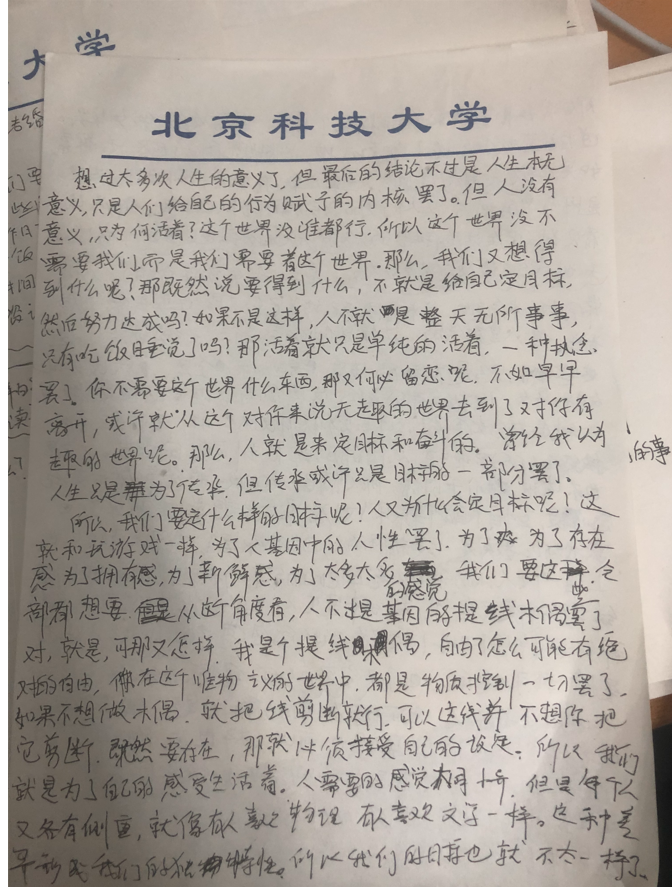 大学
北京科技大学
想过太多次人生的意义了,但最后的结论不过是人生本无
意义,只是人们给自己的行为赋予的内核罢了。但人没有
意义,只为何活着?这个世界没谁都行,所以这个世界没不
需要我们,而是我们需要着这个世界.那么,我们又想得
到什么呢?那既然说要得到什么,不就是给自己定目标,
然后努力达成吗?如果不是这样,人不就是整天无所事事,
只有吃饭睡觉了吗?那活着就只是单纯的活着,一种执念
罢了。你不需要这个世界什么东西,那又何必留恋呢,不如早早
离开,或许就从这个对你来说无趣的世界去到了对你有
趣的世界呢。那么,人就是来定目标和奋斗的。曾经我认为
人生只是为了传承,但传承或许只是目标的一部分罢了。
所以,我们要定什么样的目标呢?人又为什么会定目标呢?这
就和玩游戏一样,为了人基因中的人性罢了.为了为了存在
感为了拥有感,为了新鲜感,为了太多太多的感觉 我们要这些,全
部都想要 从这个角度看,人不过是基因的提线木偶罢了
对,就是,可那又怎样,我是个提线木偶,自由了怎么可能有绝
对的自由,你在这个唯物主义的世界中,都是物质控制一切罢了,
如果不想做木偶,就把线剪断就行,可以这线并不想你把
它剪断,既然要存在,那就必须接受自己的设定。所以我们
就是为了自己的感受生活着。人需要的感觉相同,但是每个人
又各有侧重,就像有人喜欢物理 有人喜欢文学一样。这种差
异形成我们的独特性。所以我们的目标也就不太一样了
的事